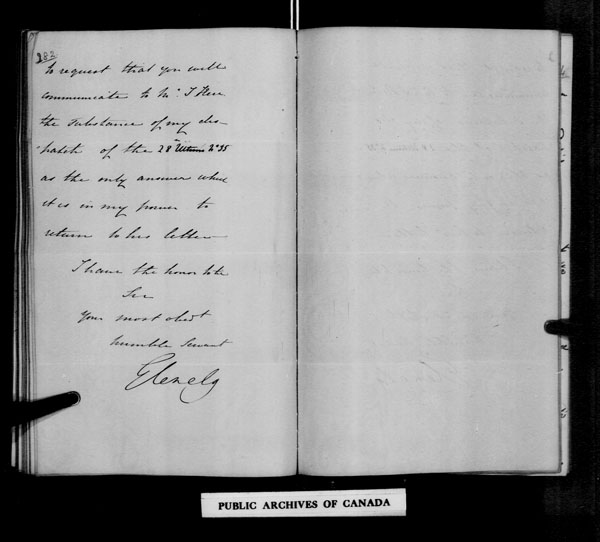 182
to request that you will
communicate to Mr. J
the substance of my des-
patch of the 28th Ultimo No 35
as the only answer which
it is in my power to
return to his letter
I have the honor to be
Sir
Your most obedt
humble Servant
Glenelg
PUBLIC ARCHIVES OF CANADA